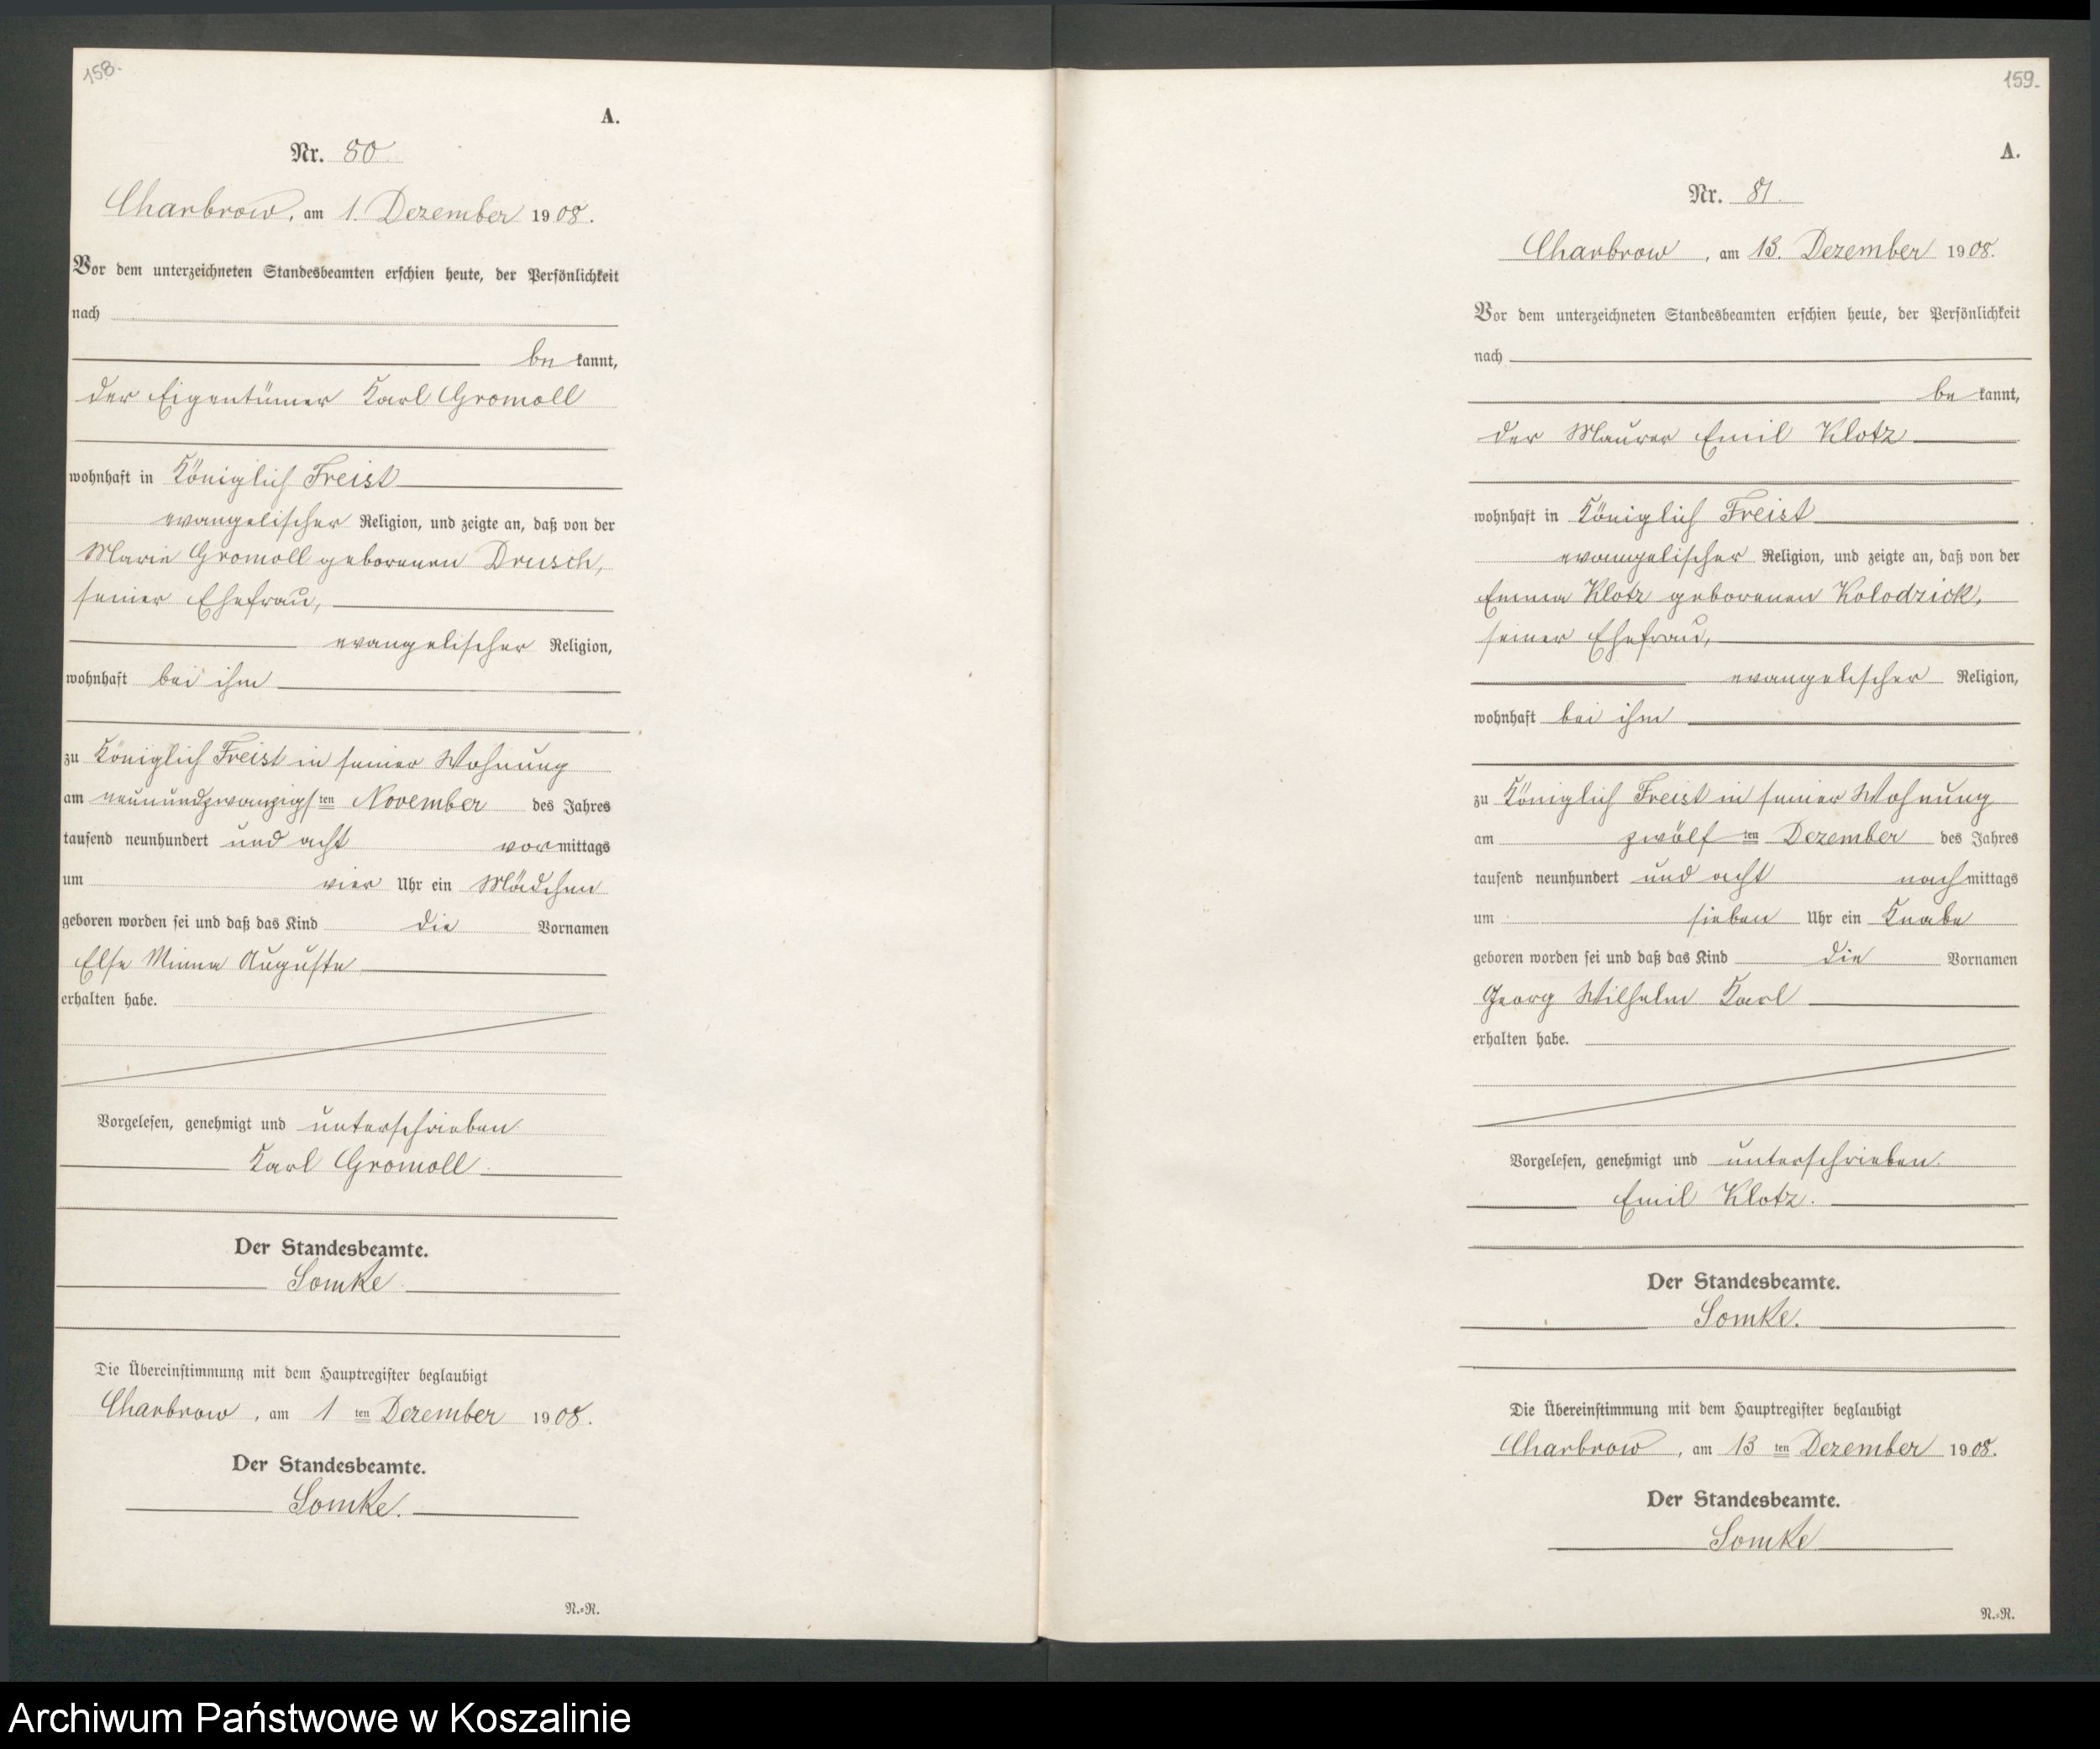 158.
A.
Nr. 80.
Charbrow, am 1. Dezember 1908.
Vor dem unterzeichneten Standesbeamten erschien heute, der Persönlichkeit
nach
be kannt,
der Eigentümer Karl Gromoll
wohnhaft in Königlich Freist
evangelischer Religion, und zeigte an, daß von der
Marie Gromoll geborenen Drusch,
seiner Ehefrau,
evangelischer Religion,
wohnhaft bei ihm
zu Königlich Freist in seiner Wohnung
am neunundzwanzigsten November des Jahres
tausend neunhundert und acht vormittags
um vier Uhr ein Mädchen
geboren worden sei und daß das Kind die Vornamen
Else Minna Auguste
erhalten habe.
Vorgelesen, genehmigt und unterschrieben
Karl Gromoll.
Der Standesbeamte.
Somke.
Die Übereinstimmung mit dem Hauptregister beglaubigt
Charbrow, am 1 ten Dezember 1908.
Der Standesbeamte.
Somke.
N.=R.
159.
A.
Nr. 81.
Charbrow, am 13. Dezember 1908.
Vor dem unterzeichneten Standesbeamten erschien heute, der Persönlichkeit
nach
be kannt,
der Maurer Emil Klotz
wohnhaft in Königlich Freist
evangelischer Religion, und zeigte an, daß von der
Emma Klotz geborenen Kolodzick,
seiner Ehefrau,
evangelischer Religion,
wohnhaft bei ihm
zu Königlich Freist in seiner Wohnung
am zwölf ten Dezember des Jahres
tausend neunhundert und acht nachmittags
um sieben Uhr ein Knabe
geboren worden sei und daß das Kind die Vornamen
Georg Wilhelm Karl
erhalten habe.
Vorgelesen, genehmigt und unterschrieben.
Emil Klotz.
Der Standesbeamte.
Somke.
Die Übereinstimmung mit dem Hauptregister beglaubigt
Charbrow, am 13 ten Dezember 1908.
Der Standesbeamte.
Somke
N.=R.
Archiwum Państwowe w Koszalinie